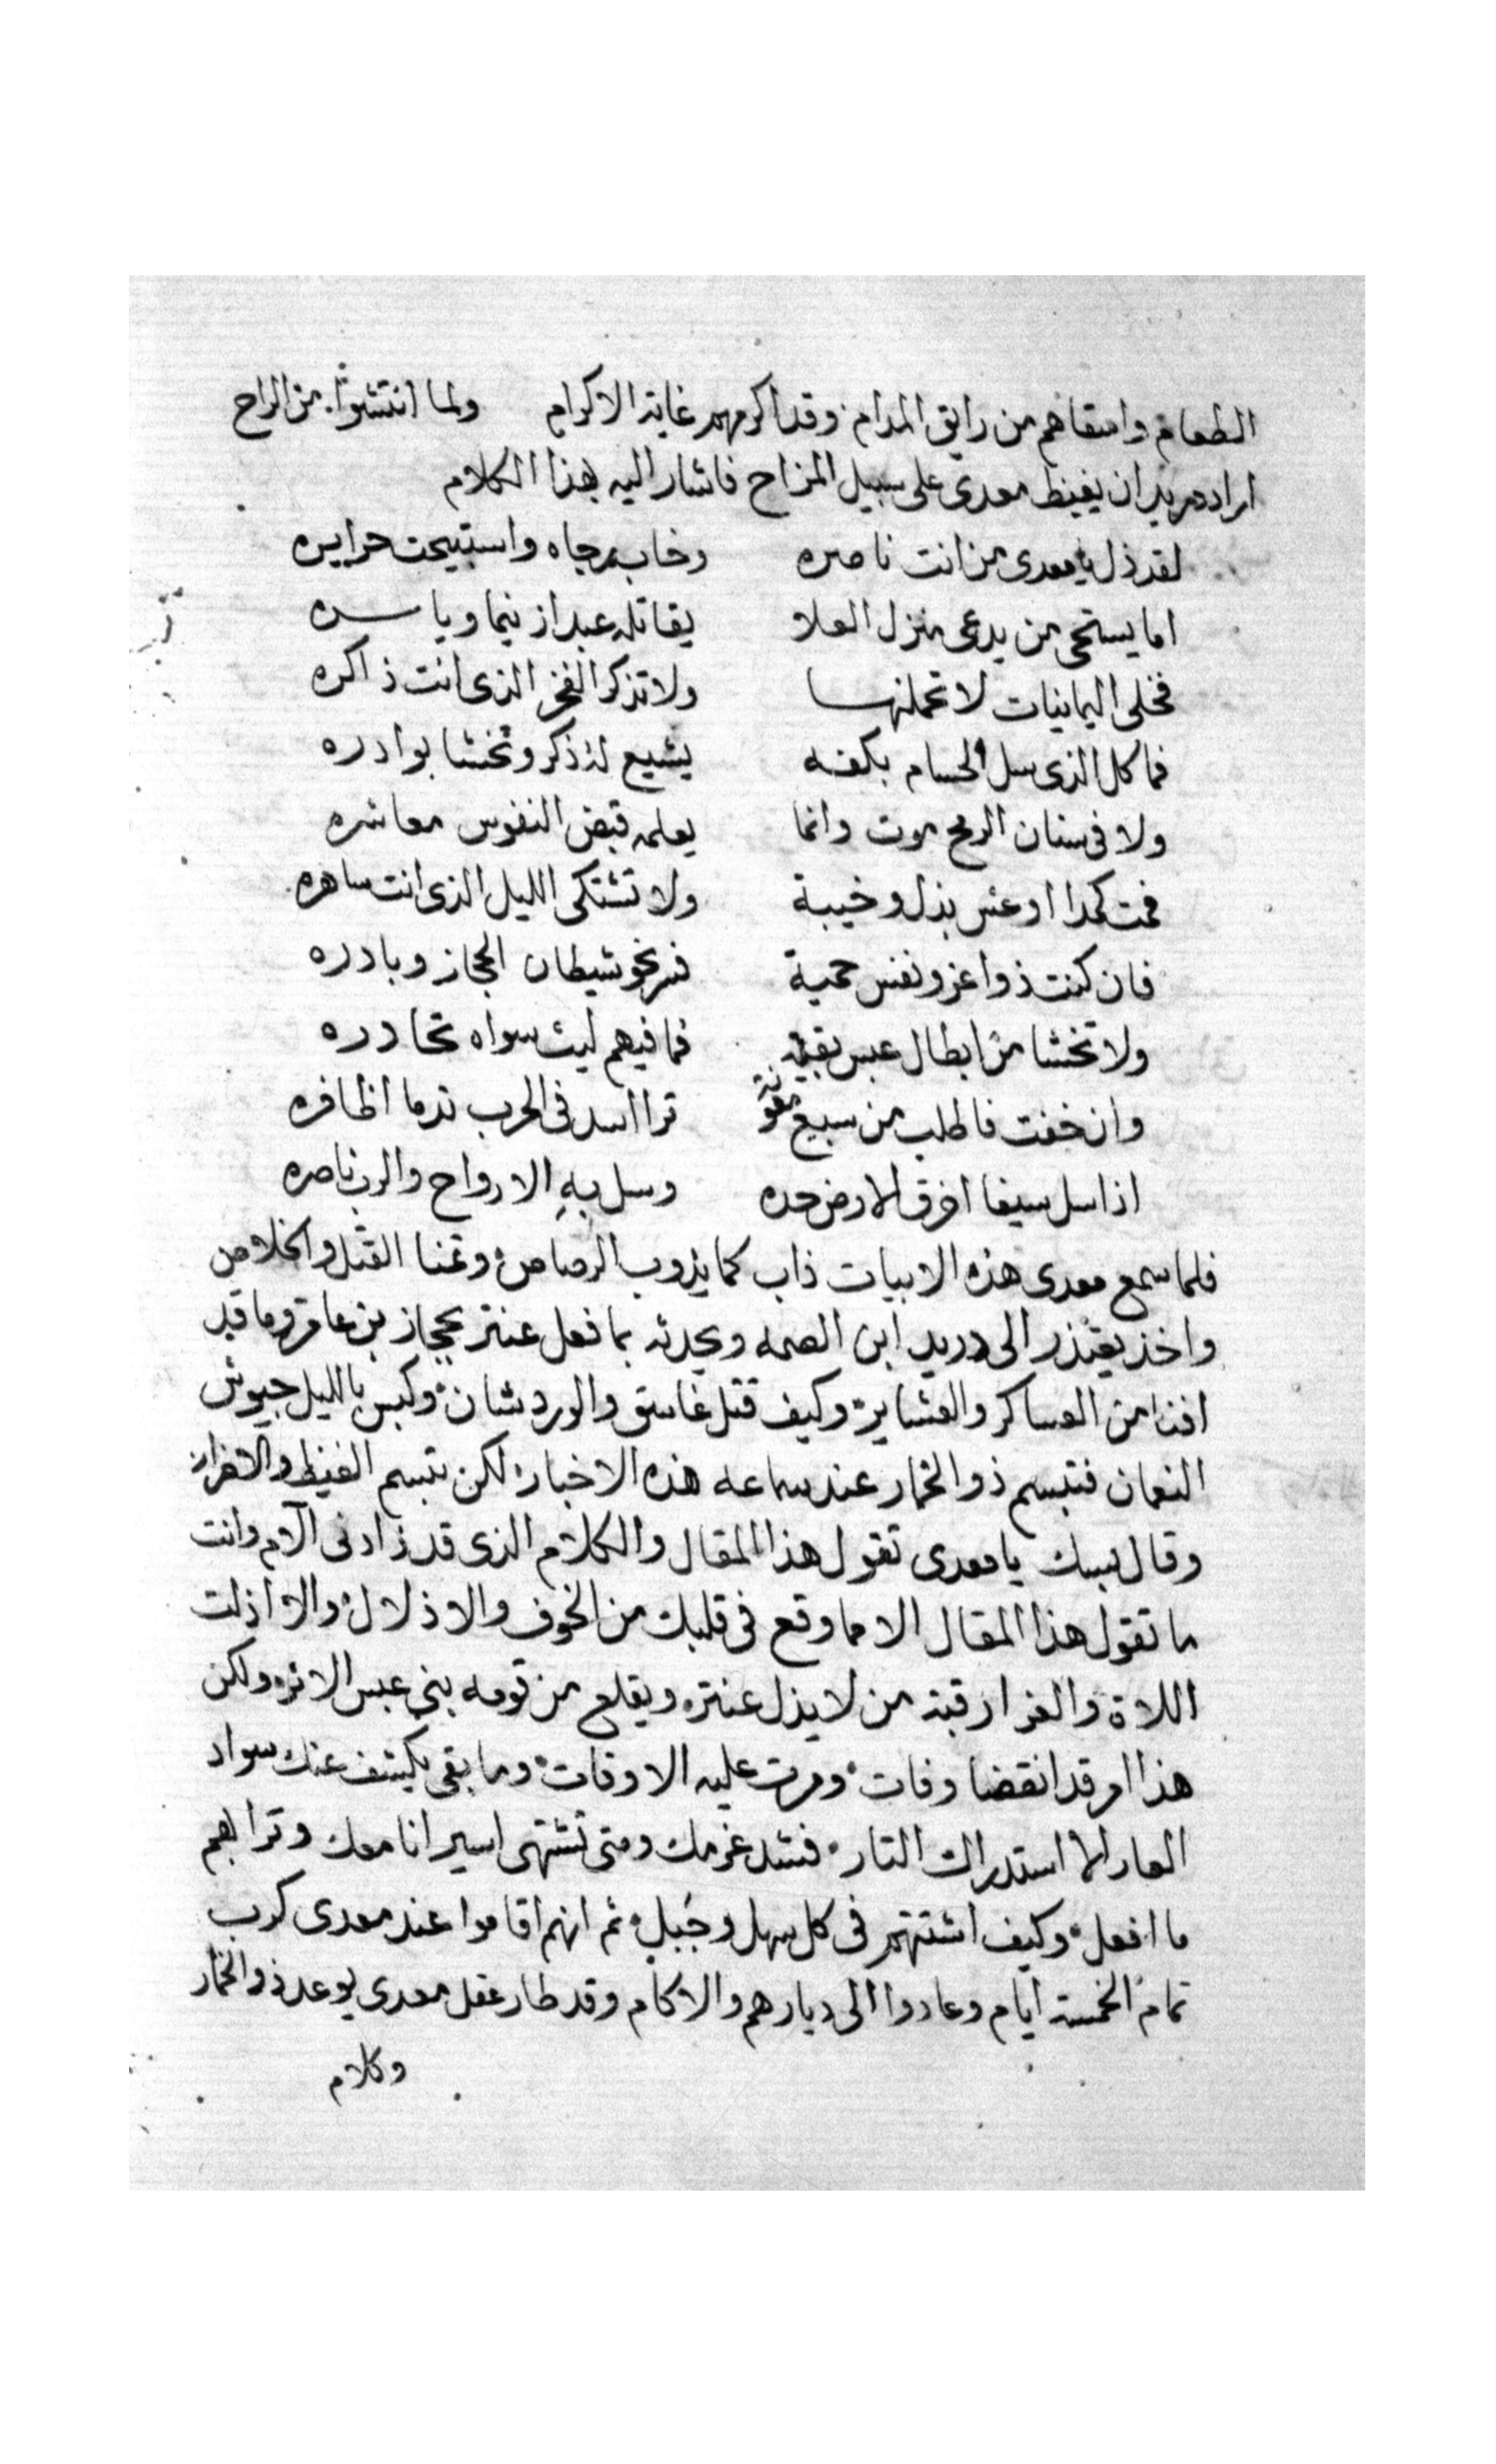 الطعام واسقاهم من رايق المدام وقد اكرمهم غاية الاكرام ولما انتشوا من الراح
اراد دريد ان يغيظ معدى على سبيل المزاح فاشار اليه بهذا الكلام
لقد ذل يا معدى من انت ناصره وخاب رجاه واستبيحت حرايره
اما يستحى من يدعى منزل العلا يقاتله عبدا زنيما وياسره
فخلى اليمانيات لا تحملنها ولا تذكر الفخر الذى انت ذاكره
فما كل الذى سل الحسام بكفه يشيع له ذكر وتخشا بوادره
ولا فى سنان الرمح موت وانما يعلمه قبض النفوس معاشره
فمت كمدا او عش بذل وخيبة ولا تشتكى الليل الذى انت ساهره
فان كنت ذوا عز ونفس حمية فسر نحو شيطان الحجاز وبادره
ولا تخشا من ابطال عبس بقية فما فيهم ليث سواه تحادره
وان خفت فاطلب من سبيع معونة ترا اسد فى الحرب تدما اظافره
اذا سل سيفا اخرق الارض حده وسل به الارواح والرب ناصره
فلما سمع معدى هذه الابيات ذاب كما يذوب الرصاص وتمنا القتل والخلاص
واخذ يعتذر الى دريد ابن الصمه ويحدثه بما فعل عنتر بحجاز بن عامر وما قد
افنا من العساكر والعشاير وكيف قتل غاسق والورد شان وكبس بالليل جيوش
النعمان فتبسم ذو الخمار عند سماعه هذه الاخبار لكن تبسم الغيظ والاضرار
وقال لبيك يا معدى تقول هذا المقال والكلام الذى قد زادنى الآم وانت
ما تقول هذا المقال الا مما وقع فى قلبك من الخوف والاذلال والا اذلت
اللاة والعزا رقبة من لا يذل عنتره ويقلع من قومه بنى عبس الاثر ولكن
هذا امر قد انقضا وفات ومرت عليه الاوقات وما بقى يكشف عنك سواد
العار الا استدراك التار فشد عزمك ومتى تشتهى اسير انا معك وترا بهم
ما افعل وكيف اشتتهم فى كل سهل وجبل ثم انهم اقاموا عند معدى كرب
تمام الخمسة ايام وعادوا الى ديارهم والاكام وقد طار عقل معدى بوعد ذو الخمار
وكلام